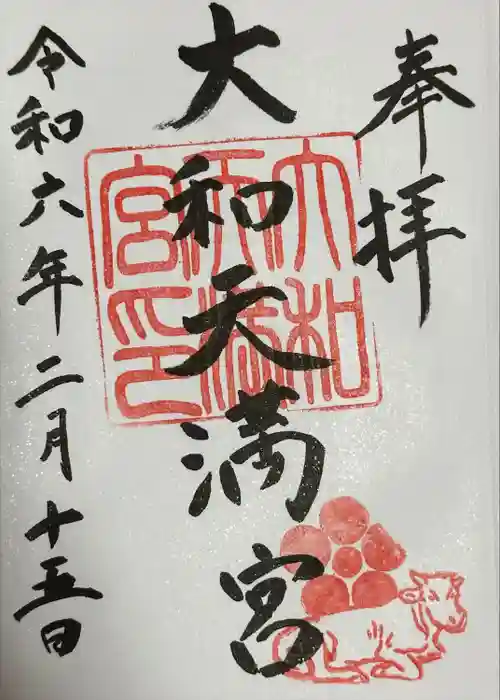 奉拝
大和天満宮
大和天満宮印
令和六年二月十五日